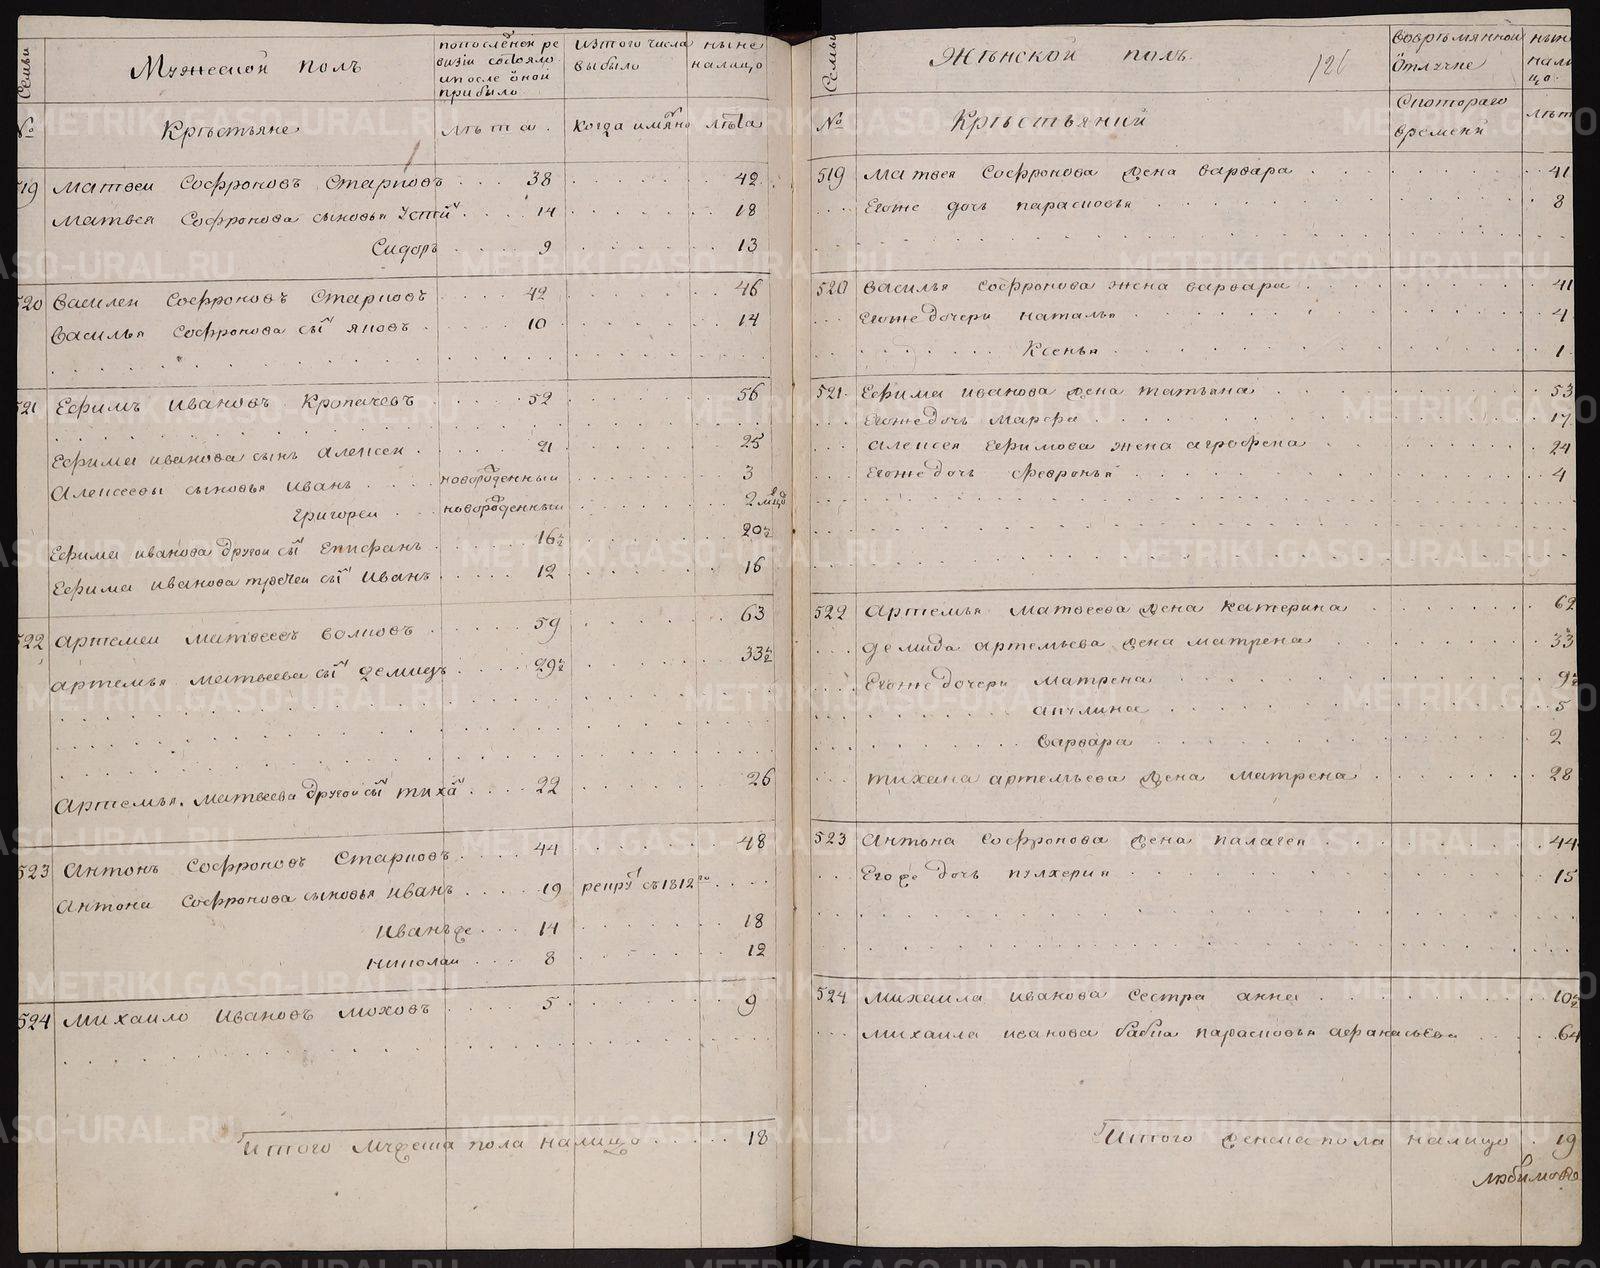 Семьи
Мужеской полъ
попоследней ре
визіи состояло
ипосле оной
прибыло
изтого числа
выбыло
ныне
налицо
№
Крестьяне
лета
когда имянно
лета
519 Матвеи Софроновъ Стариковъ 38 42
Матвея Софронова сыновья Устинъ 14 18
Сидоръ 9 13
520 Василеи Софроновъ Стариковъ 42 46
Василья Софронова сынъ Яковъ 10 14
521 Ефимъ Ивановъ Кропачевъ 52 56
Ефима Иванова сынъ Алексеи 21 25
Алексеевы сыновья Иванъ новорожденныи 3
Григореи новорожденныи 2 мсцо
Ефима Иванова другои сынъ Епифанъ 16½ 20½
Ефима Иванова третеи сынъ Иванъ 12 16
522 Артемеи Матвеевъ Волковъ 59 63
Артемья Матвеева сынъ Демидъ 29½ 33½
Артемья Матвеева другои сынъ Тиханъ 22 26
523 Антонъ Софроновъ Стариковъ 44 48
Антона Софронова сыновья Иванъ 19 рекрутъ съ1812го
Иванъже 14 18
Николаи 8 12
524 Михаило Ивановъ Моховъ 5 9
Итого мужеска пола налицо 18
Семьи
Женской полъ
126
Вовременной
отлучке
ныне
нали
цо
№
Крестьянки
Скотораго
времени
лета
519 Матвея Софронова жена Варвара 41
Егоже дочь Парасковья 8
520 Василья Софронова жена Варвара 41
Егоже дочери Наталья 4
Ксенья 1
521 Ефима Иванова жена Татьяна 53
Егоже дочь Марфа 17
Алексея Ефимова жена Агрофена 24
Егоже дочь Февронья 4
522 Артемья Матвеева жена Катерина 62
Демида Артемьева жена Матрена 33½
Егоже дочери Матрена 9½
Акулина 5
Варвара 2
Тихана Артемьева жена Матрена 28
523 Антона Софронова жена Палагея 44
Егоже дочь Пулхерия 15
524 Михаила Иванова сестра Анна 10½
Михаила Иванова бабка Парасковья Афанасьева 64
Итого женска пола налицо 19
Любимовъ
METRIKI.GASO-URAL.RU